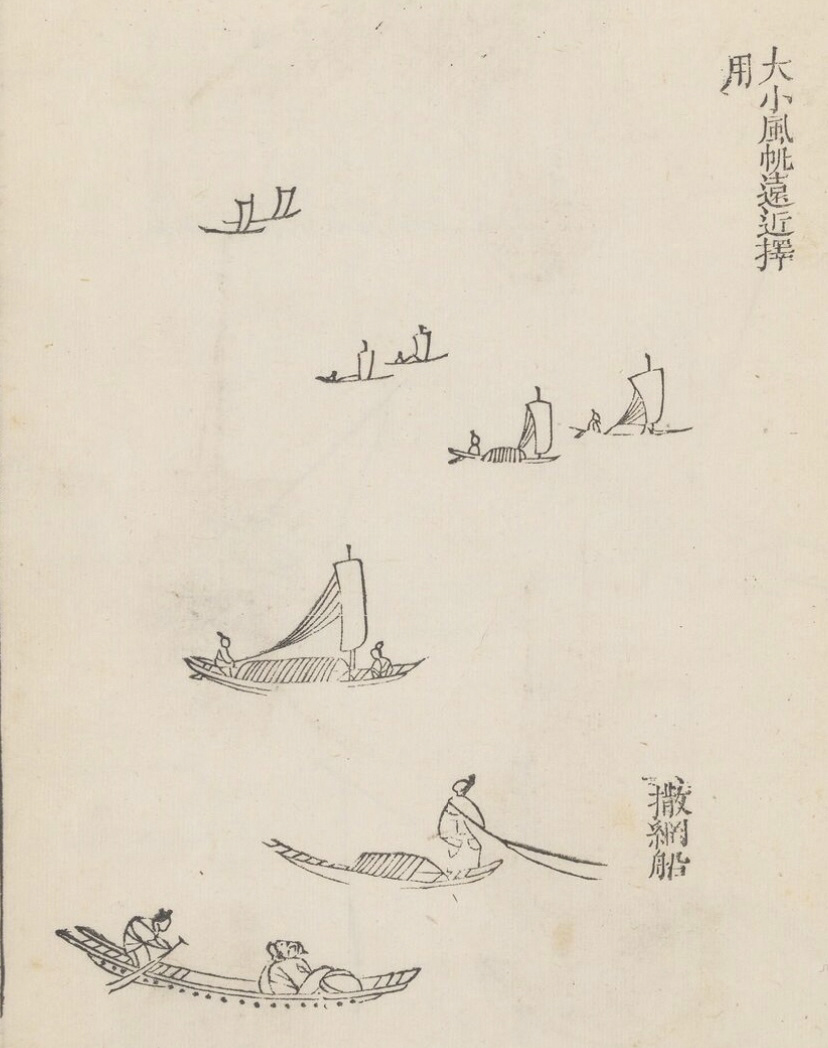 大小風帆遠近擇
用
撒網船